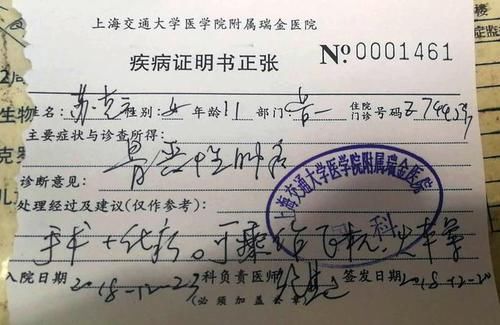 上海交通大学医学院附属瑞金医院
疾病证明书正张 No. 0001461
姓名: 苏 性别: 女 年龄 11 部门: 骨 住院门诊号码 Z744
主要症状与诊查所得:
骨恶性肿瘤
诊断意见:
处理经过及建议(仅作参考):
手术+化疗。可乘坐飞机、火车等
入院日期 2018-12-23 科负责医师 签发日期 2018-12-20
(必须加盖公章)
上海交通大学医学院附属瑞金医院
科